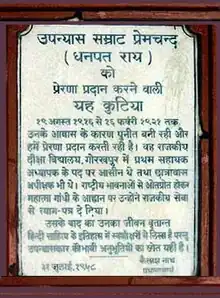 उपन्यास सम्राट प्रेमचन्द
(धनपत राय)
को
प्रेरणा प्रदान करने वाली
यह कुटिया
१९ अगस्त १९१६ से १६ फरवरी १९२१ तक
उनके आवास के कारण पुनीत बनी रही और
हमें प्रेरणा प्रदान करती रही है। वह राजकीय
दीक्षा विद्यालय, गोरखपुर में प्रथम सहायक
अध्यापक के पद पर आसीन थे तथा छात्रावास
अधीक्षक भी थे। राष्ट्रीय भावनाओं से ओतप्रोत होकर
महात्मा गांधी के आह्वान पर उन्होंने राजकीय सेवा
से त्याग-पत्र दे दिया।
उसके बाद का उनका जीवन वृतान्त
हिन्दी साहित्य के इतिहास में स्वर्णाक्षरों में लिखा है परन्तु
उपन्यासकार की भावी अनुभूतियों का स्रोत यहीं है।
जुलाई, १९५८
नाथ